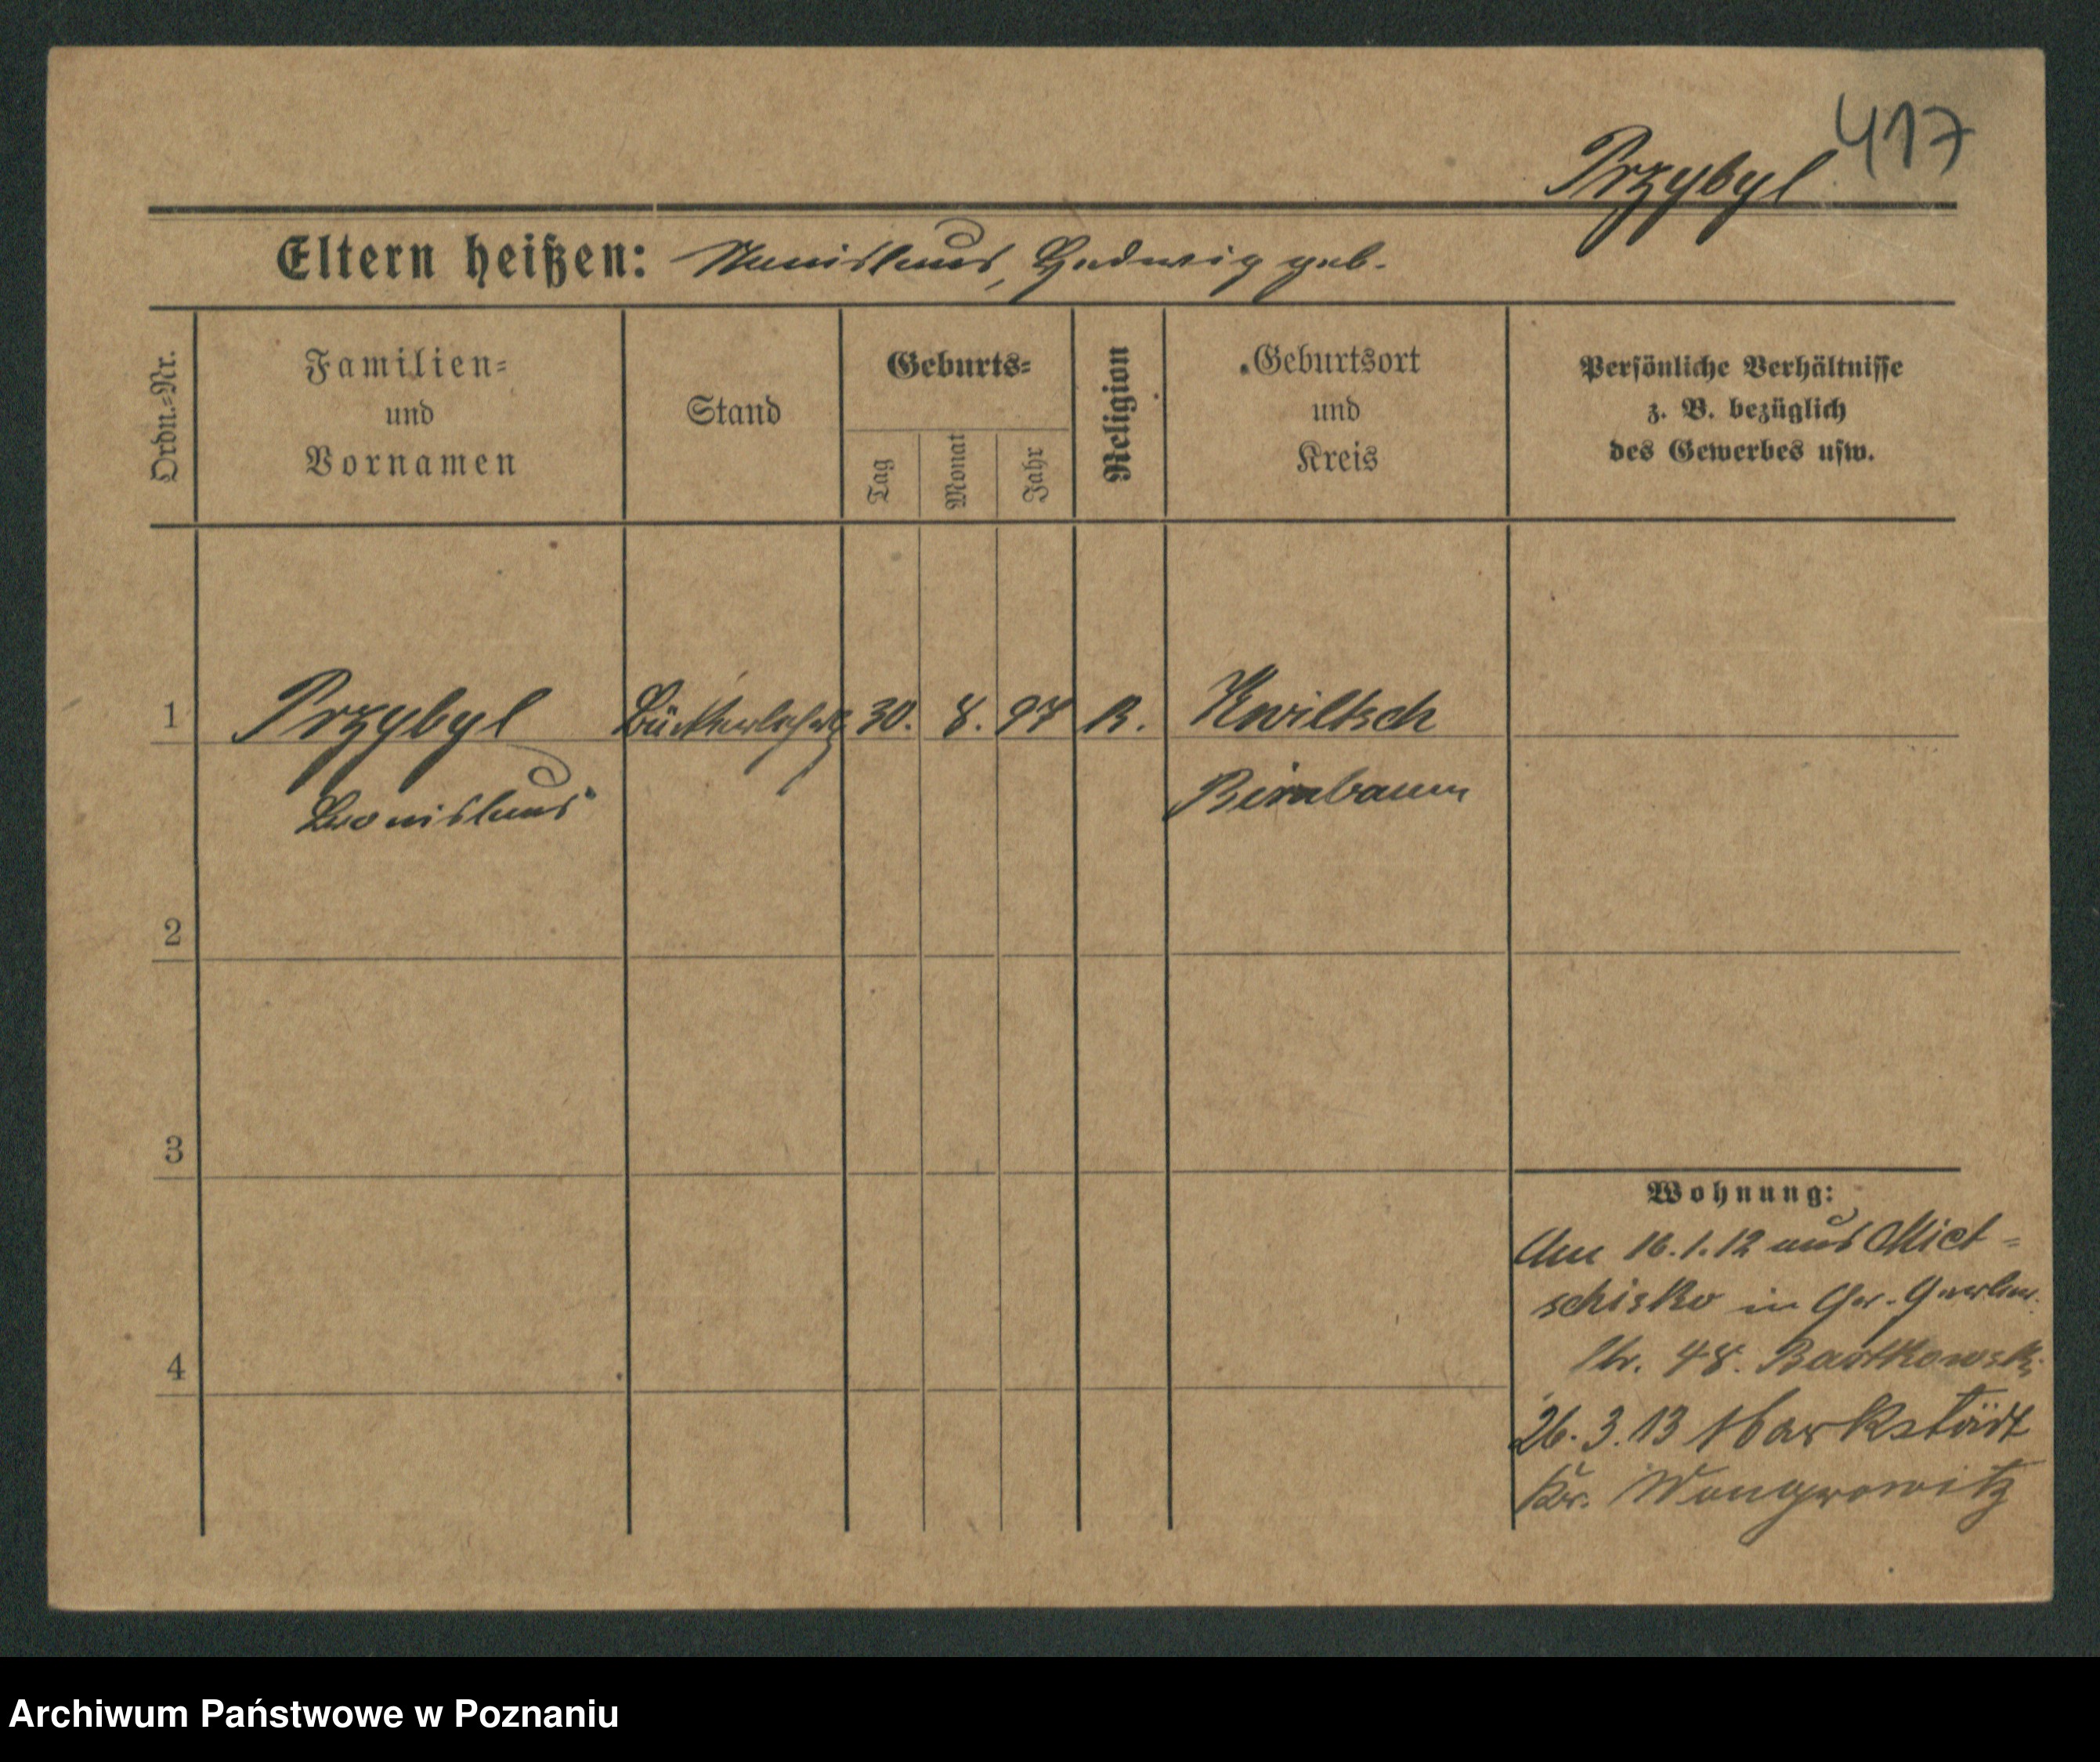 417
Przybyl
Eltern heißen: Stanislaus, Hedwig geb.
Ordn.=Nr.
Familien=
und
Vornamen
Stand
Geburts=
Tag
Monat
Jahr
Religion
Geburtsort
und
Kreis
Persönliche Verhältnisse
z. B. bezüglich
des Gewerbes usw.
1 Przybyl Bäckerlehrlg 30. 8. 97 R. Kwiltsch
Bronislaus Birnbaum
2
3
4
Wohnung:
Am 16.1.12 aus Miet=
schisko in Gr. Gerber
str. 48. Bartkowski
26.3.13 Markstädt
Kr. Wongrowitz
Archiwum Państwowe w Poznaniu